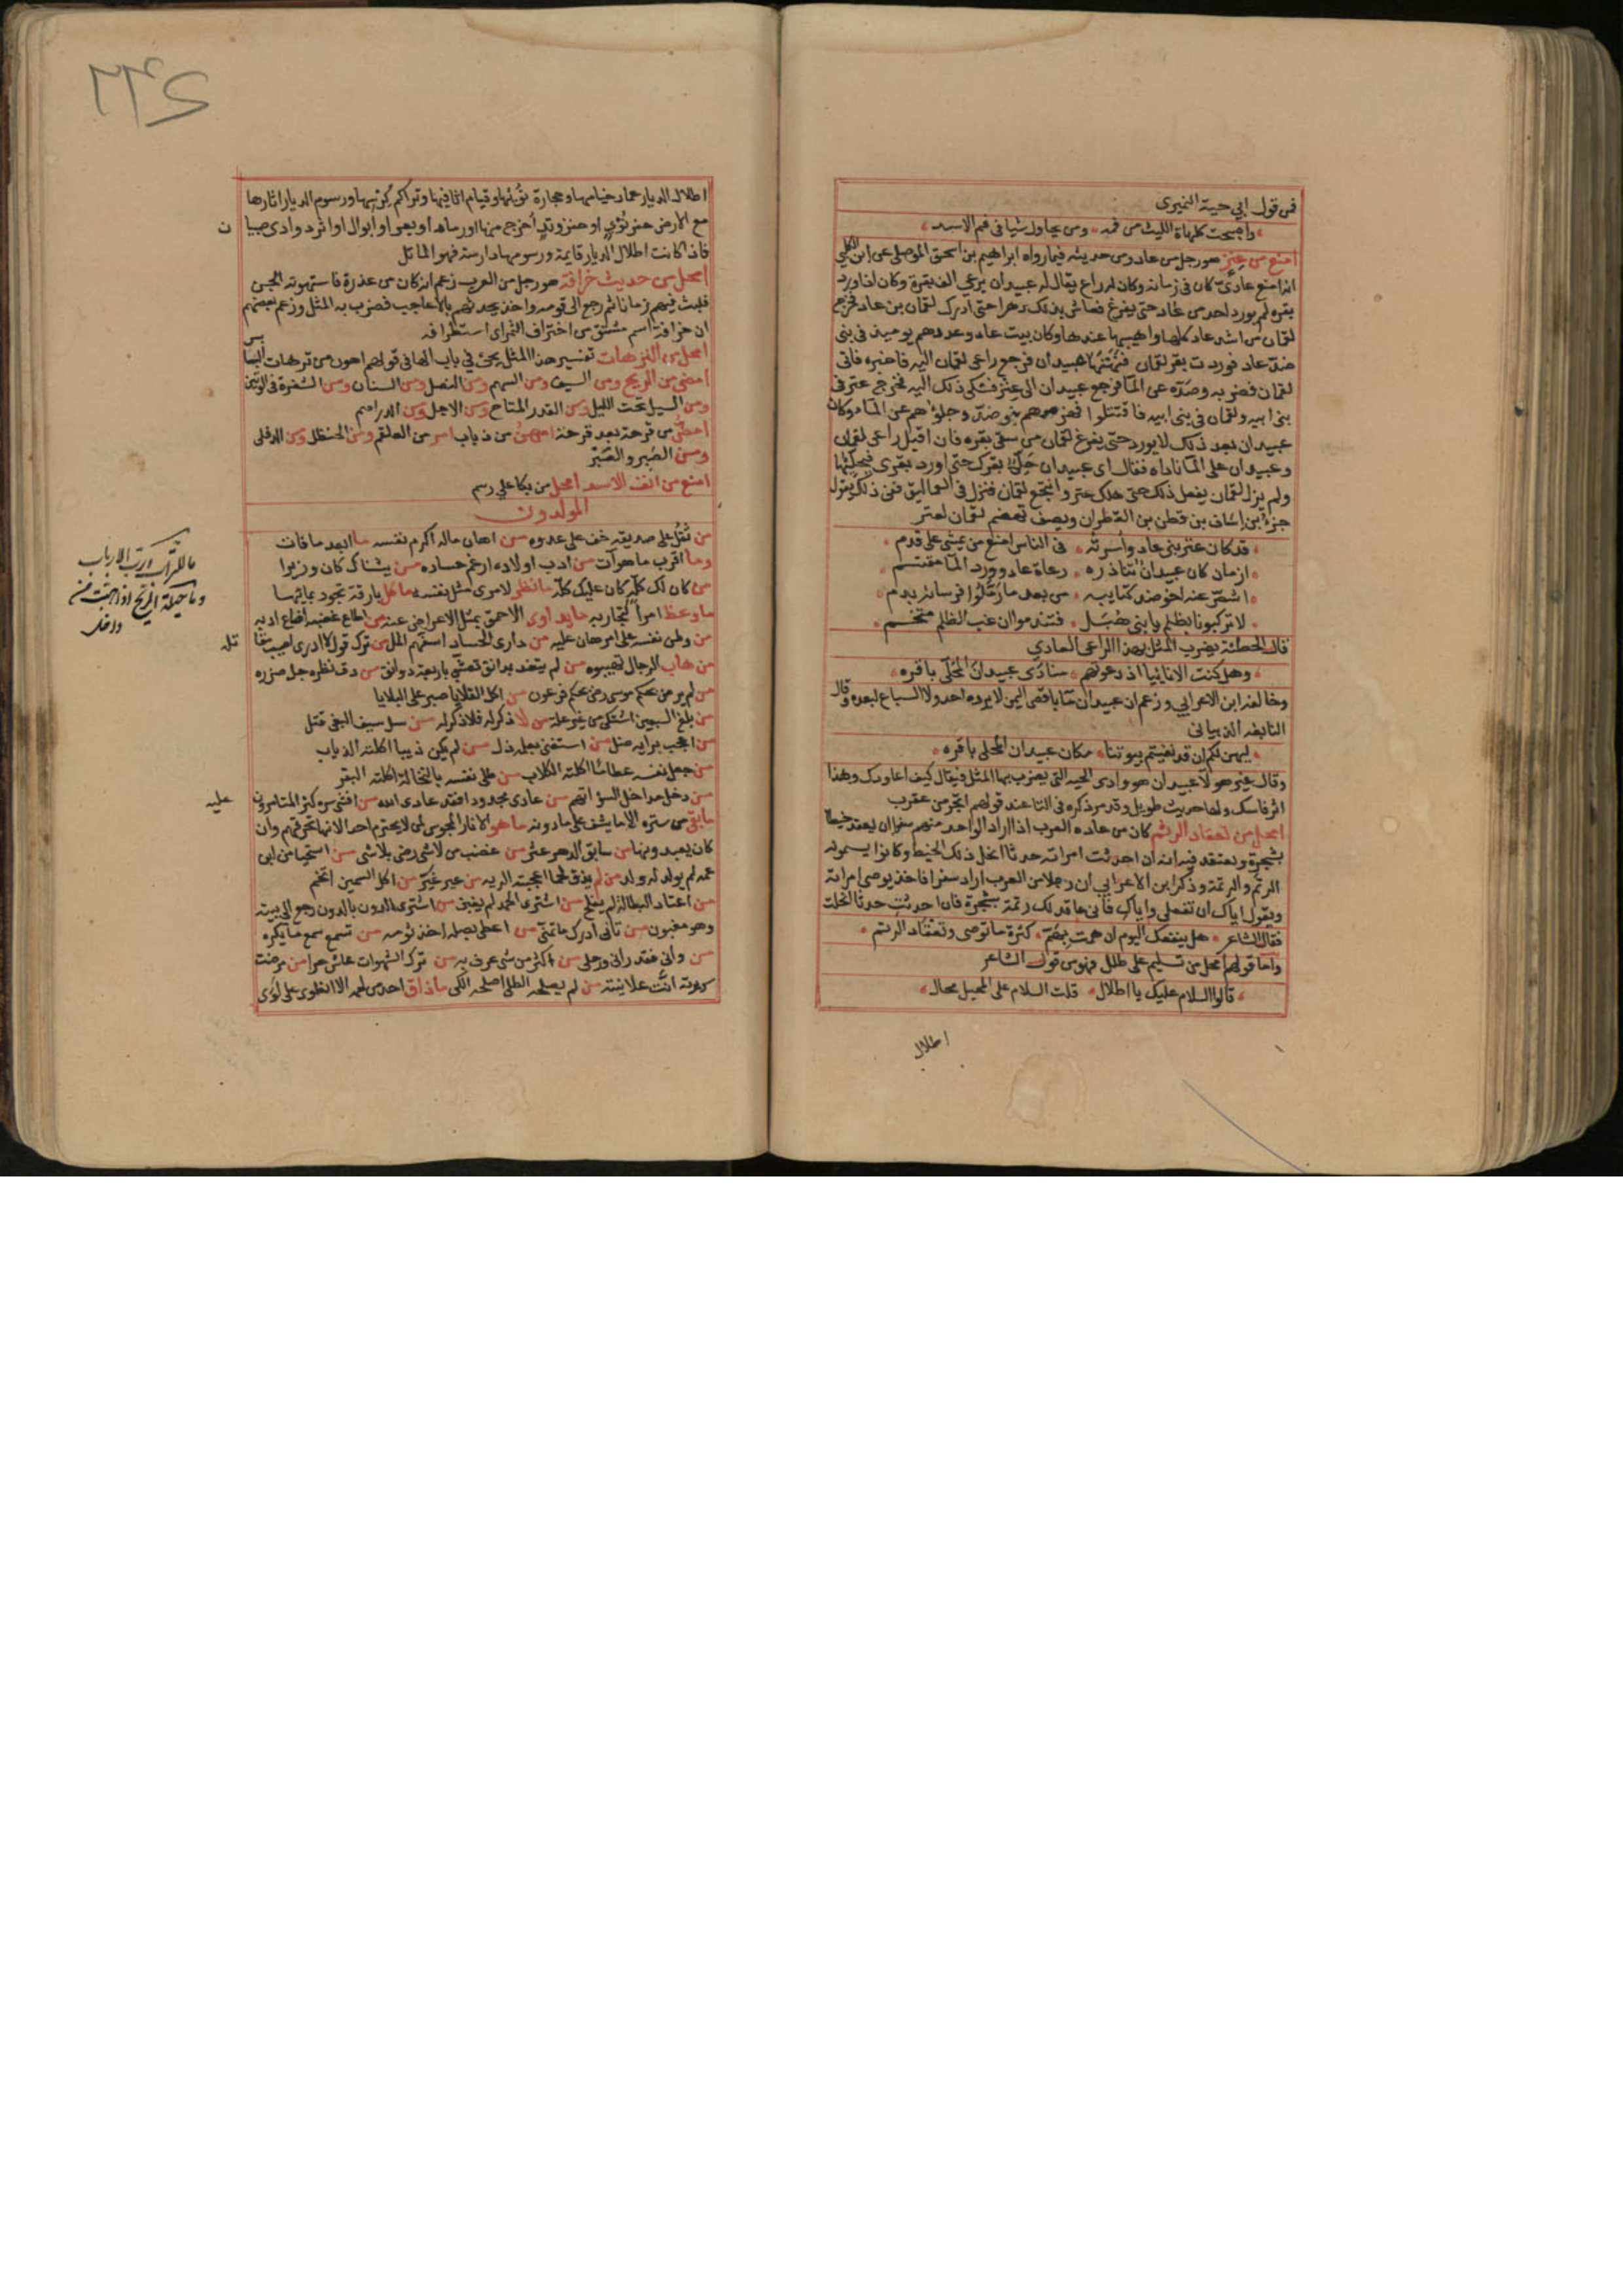 فمن قول ابي حية النميرى
واصبحت كلهاة الليث من فمه ومن يحاول شيا فى فم الاسد
امنع من عنز هو رجل من عاد ومن حديثه فيما رواه ابراهيم بن اسحق الموصلى عن ابن الكلبي
انه امنع عادى كان فى زمانه وكان له راع يقال له عبيدان يرعى الف بقرة وكان اذا ورد
بقره لم يورد احد من عاد حتى يفرغ فعاش بذلك دهرا حتى ادرك لقمان بن عاد فخرج
لقمان من اشد عاد كلها واهيبها عندها وكان بيت عاد وعددهم يوميذ فى بنى
ضد بن عاد فوردت بقر لقمان فنهنهها عبيدان فرجع راعى لقمان اليه فاخبره فاتى
لقمان فضربه وصده عن الما فرجع عبيدان الى عنز فشكى ذلك اليه فخرج عنز فى
بنى ابيه ولقمان فى بنى ابيه فاقتتلوا فهزموهم بنو ضد وحلوهم عن الما وكان
عبيدان بعد ذلك لا يورد حتى يفرغ لقمان من سقى بقره فان اقبل راعى لقمان
وعبيدان على الما ناداه فقال اى عبيدان حلى بقرك حتى اورد بقرى فيحليها
ولم يزل لقمان يفعل ذلك حتى هلك عنز وانتجع لقمان فنزل فى العماليق ففى ذلك يقول
جزء بن اساف بن قطن بن القطران ويصف تهضم لقمان لعنز
قد كان عنز بنى عاد واسرته فى الناس امنع من يمشى على قدم
ازمان كان عبيدان تناذره رعاة عاد وورد الما مقتسم
اشص عنه اخو ضد كتايبه من بعد ما رملوا فرسانه بدم
لا تركبونا بظلم يا بنى هبل فتندموا ان غب الظلم متخم
قال الحطئة يضرب المثل بهذا الراعى العادي
وهل كنت الا نائيا اذ دعوتهم منادى عبيدان المحلى باقره
وخالفه ابن الاعرابي وزعم ان عبيدان ما باقصى اليمن لا يرده احد ولا السباع لبعده وقال
النابغه الذبيانى
ليهن لكم ان قد نفيتم بيوتنا مكان عبيدان المحلى باقره
وقال غير هولا عبيدان هو وادى الحيه التى يضرب بها المثل فيقال كيف اعاودك وهذا
اثر فاسك ولها حديث طويل وقد مر ذكره فى التا عند قولهم اتجر من عقرب
امحل من تعقاد الرتم كان من عاده العرب اذا اراد الواحد منهم سفرا ان يعقد خيطا
بشجرة ويعتقد فيه انه ان احدثت امراته حدثا انحل ذلك الخيط وكانوا يسمونه
الرتم والرتمة وذكر ابن الاعرابي ان رجلا من العرب اراد سفرا فاخذ يوصى امراته
ويقول اياك ان تفعلي واياك فانى عاقد لك رتمة بشجرة فان احدثت حدثا انحلت
فقال الشاعر هل ينفعك اليوم ان همت بهم كثرة ما توصى وتعقاد الرتم
واما قولهم امحل من تسليم على طلل فهو من قول الشاعر
قالوا السلام عليك يا اطلال قلت السلام على المحيل محال
اطلال
اطلال الديار عماد خيامها وحجارة نؤيها وقيام اثافيها وتراكم كرسها ورسوم الديار اثارها
مع الارض
فاذا كانت اطلال الديار قايمة ورسومها دارسة فهو الماثل
امحل من حديث خرافة هو رجل من العرب زعم انه كان من عذرة فاستهوته الجن
فلبث فيهم زمانا ثم رجع الى قومه واخذ يحدثهم بالاعاجيب فضرب به المثل وزعم بعضهم
ان خرافة اسم مشتق من اختراف الثمر اى استطرافه
امحل من الترهات تفسير هذا المثل يجئ في باب الها فى قولهم اهون من ترهات البسابس
امضى من الريح ومن السيف ومن السهم ومن النصل ومن السنان ومن الشفرة فى الوتين
ومن السيل تحت الليل ومن القدر المتاح ومن الاجل ومن الدراهم
امطل من قرحة بعد قرحة امهن من ذباب امر من العلقم ومن الحنظل ومن الدفلى
ومن الصبر والمقر
امنع من انف الاسد امحل من بكا على رسم
المولدون
من ثقل على صديقه خف على عدوه من اهان ماله اكرم نفسه ما ابعد ما فات
وما اقرب ما هو آت من ادب اولاده ارغم حساده
من كان لك كله كان عليك كله ما نظر لامرى مثل نفسه ما كل بارقة تجود بمائها
ما وعظ امرا كتجاربه ما يداوى الاحمق بمثل الاعراض عنه من اطاع غضبه اضاع ادبه
من وطن نفسه على امر هان عليه من ترك قول لا ادرى اصيبت مقاتله
من هاب الرجال تهيبوه من لم يتغد بدانق تعشى باربعة دوانق من دق نظره جل ضرره
من لم يرض بحكم موسى رضى بحكم فرعون من اكل القلايا صبر على البلايا
من بلغ السبعين اشتكى من غير علة من لا ذكر له فلا ذكر له من سل سيف البغى قتل
من اعجب برايه ضل من استغنى بعقله زل من لم يكن ذيبا اكلته الذياب
من جعل نفسه عظاما اكلته الكلاب من طلى نفسه بالنخالة اكلته البقر
من دخل مداخل السؤ اتهم من عادى مجدودا فقد عادى الله من افشى سره كثر المتامرون عليه
ما بقى من ستره الا ما يشف على ما دونه ما هو الا نار المجوس لمن لا يحترم احدا لانها تحرقهم وان
كان يعبدونها من سابق الدهر عثر من غضب من لاشى رضى بلاشى من استحيا من ابنة
عمه لم يولد له ولد من لم يذق لحما اعجبته الرية من عير عير من اكل السمين اتخم
من اعتاد البطالة لم يفلح من اشترى الحمد لم يغبن من اشترى الدون بالدون رجع الى بيته
وهو مغبون من تانى ادرك ما تمنى من اعطى بصله اخذ ثومه من تسمع سمع ما يكره
من رانى فقد رانى ورحلى من اكثر من شى عرف به من ترك الشهوات عاش حرا من مرضت
سريرته انت علانيته من لم يصلحه الطلى اصلحه الكى
ما للتراب ورب الارباب
وما حيلة الريح اذا هبت من داخل